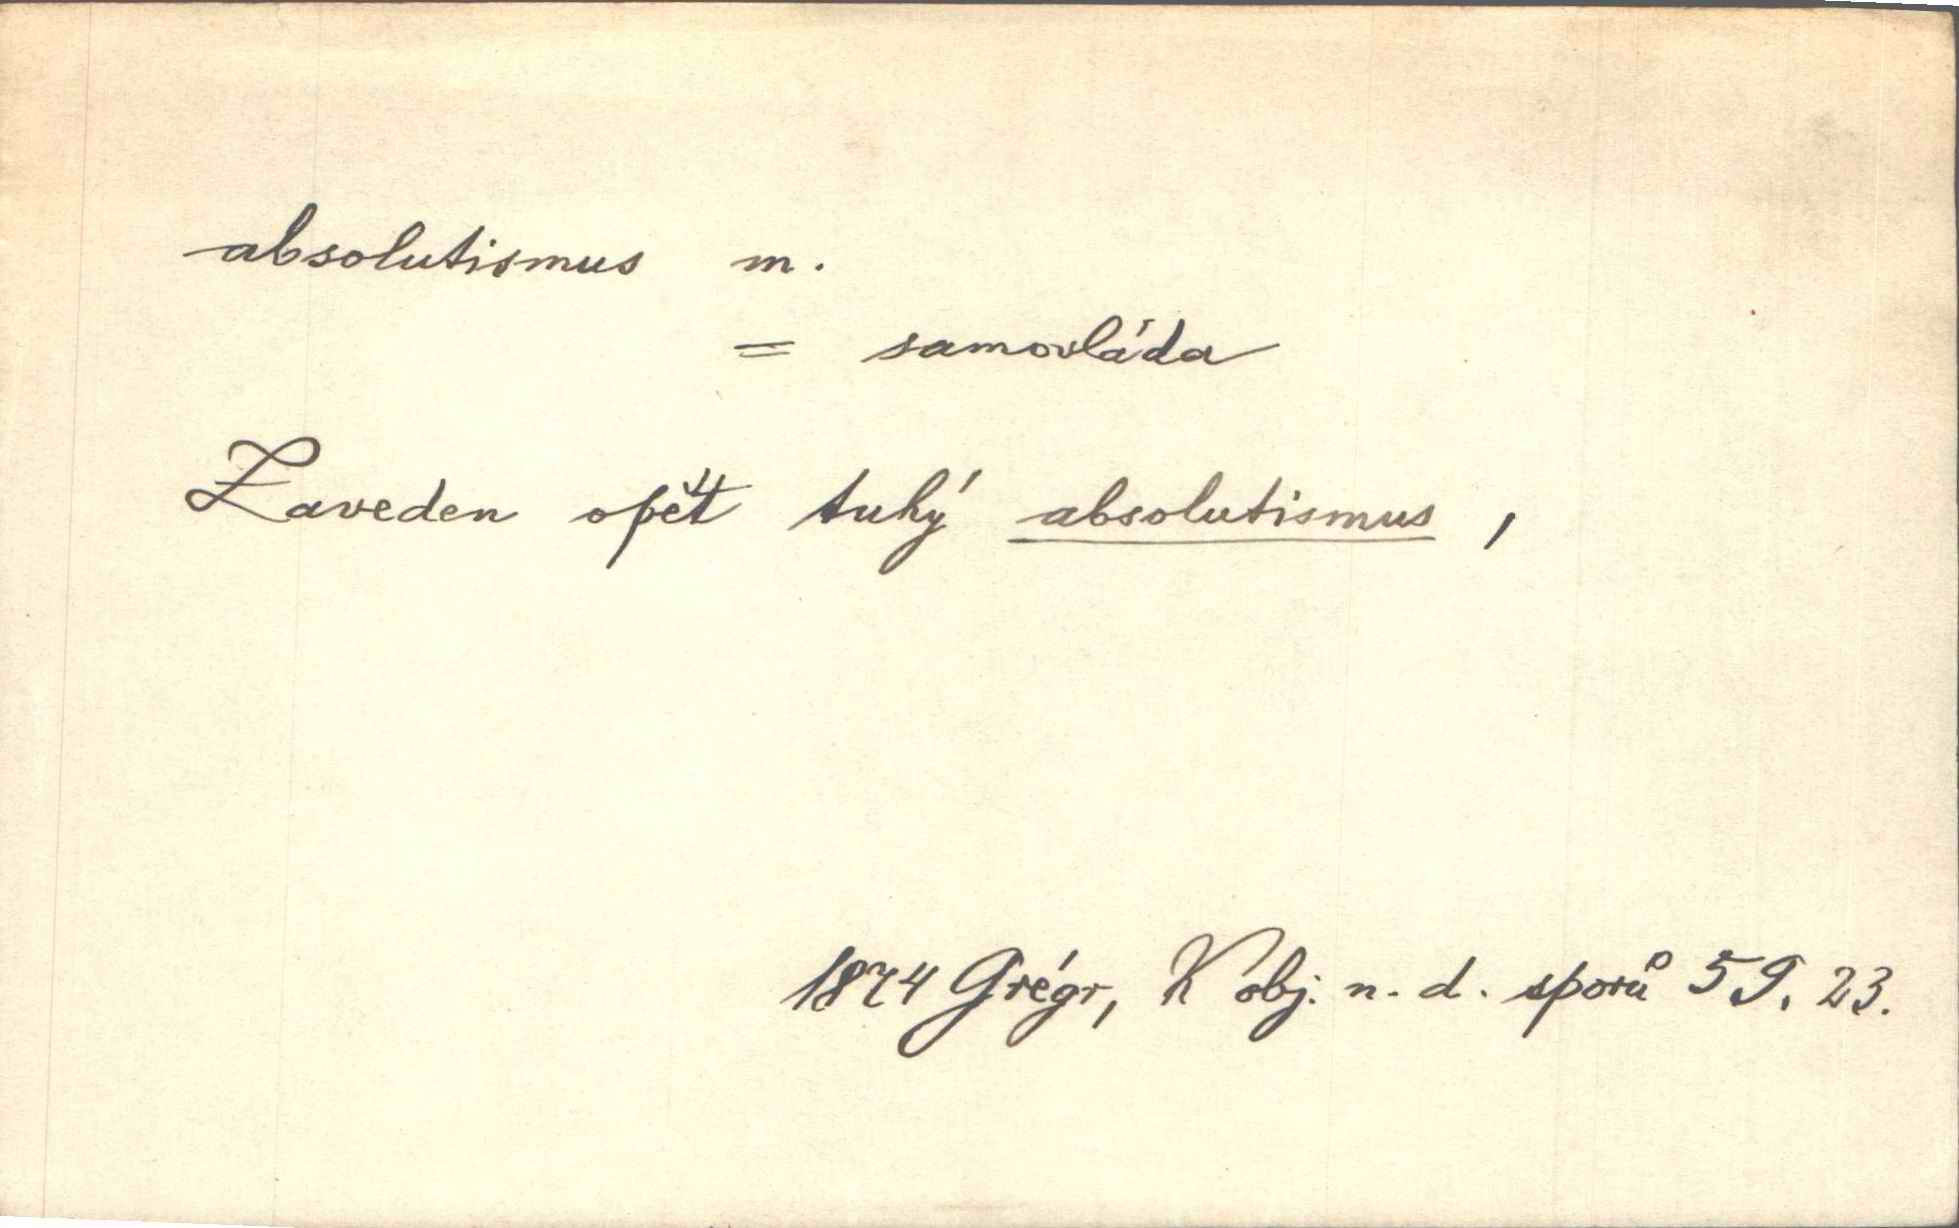 absolutismus m.
= samovláda
Zaveden opět tuhý absolutismus,
1874 Grégr, K obj. n. d. sporů 59, 23.